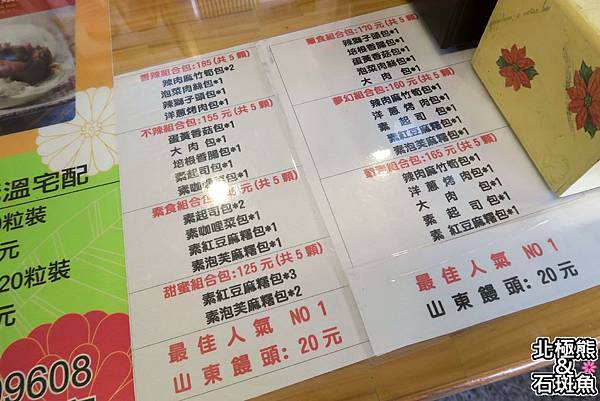 香辣組合包:185(共5顆)
辣肉麻竹筍包*2
泡菜肉絲包*1
辣獅子頭包*1
洋蔥烤肉包*1
不辣組合包:155元(共5顆)
蛋黃香菇包*1
大肉包*1
培根香腸包*1
素起司包*1
素咖哩菜包*1
素食組合包 元(共5顆)
素起司包*2
素咖哩菜包*1
素紅豆麻糬包*1
素泡芙麻糬包*1
甜蜜組合包:125元(共5顆)
素紅豆麻糬包*3
素泡芙麻糬包*2
最佳人氣 NO 1
山東饅頭:20元
葷食組合包:170元(共5顆)
辣獅子頭包*1
培根香腸包*1
蛋黃香菇包*1
泡菜肉絲包*1
大肉包*1
夢幻組合包:160元(共5顆)
辣肉麻竹筍包*1
洋蔥烤肉包*1
素起司包*1
素紅豆麻糬包*1
素泡芙麻糬包*1
組合包:165元(共5顆)
辣肉麻竹筍包*1
洋蔥烤肉包*1
大肉包*1
素起司包*1
素紅豆麻糬包*1
最佳人氣 NO 1
山東饅頭:20元
溫宅配
粒裝
元
20粒裝
元
09608
北極熊
&
石斑魚